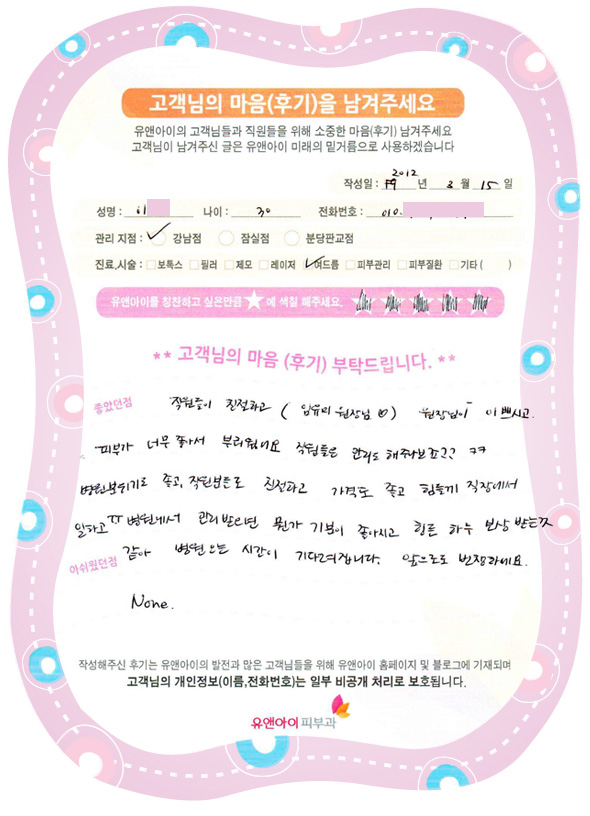 고객님의 마음(후기)을 남겨주세요
유앤아이의 고객님들과 직원들을 위해 소중한 마음(후기) 남겨주세요
고객님이 남겨주신 글은 유앤아이 미래의 밑거름으로 사용하겠습니다
작성일 : 2012 년 3 월 15 일
성명 : 이 나이 : 30 전화번호 : 010.
관리 지점 : 강남점 잠실점 분당판교점
진료,시술 : 보톡스 필러 제모 레이저 여드름 피부관리 피부질환 기타 ( )
유앤아이를 칭찬하고 싶은만큼 ★ 에 색칠 해주세요.
** 고객님의 마음 (후기) 부탁드립니다. **
좋았던점 직원들이 친절하고 ( 임유리 원장님 ♡) 원장님이 이쁘시고.
피부가 너무 좋아서 부러웠네요 직원들은 관리도 해주나보죠?? ㅋㅋ
병원분위기도 좋고, 직원분들도 친절하고 가격도 좋고 힘들게 직장에서
일하고 ㅠ 병원에서 관리받으면 뭔가 기분이 좋아지고 힘든 하루 보상 받는것
아쉬웠던점 같아 병원오는 시간이 기다려집니다. 앞으로도 번창하세요.
None.
작성해주신 후기는 유앤아이의 발전과 많은 고객님들을 위해 유앤아이 홈페이지 및 블로그에 기재되며
고객님의 개인정보(이름,전화번호)는 일부 비공개 처리로 보호됩니다.
유앤아이 피부과